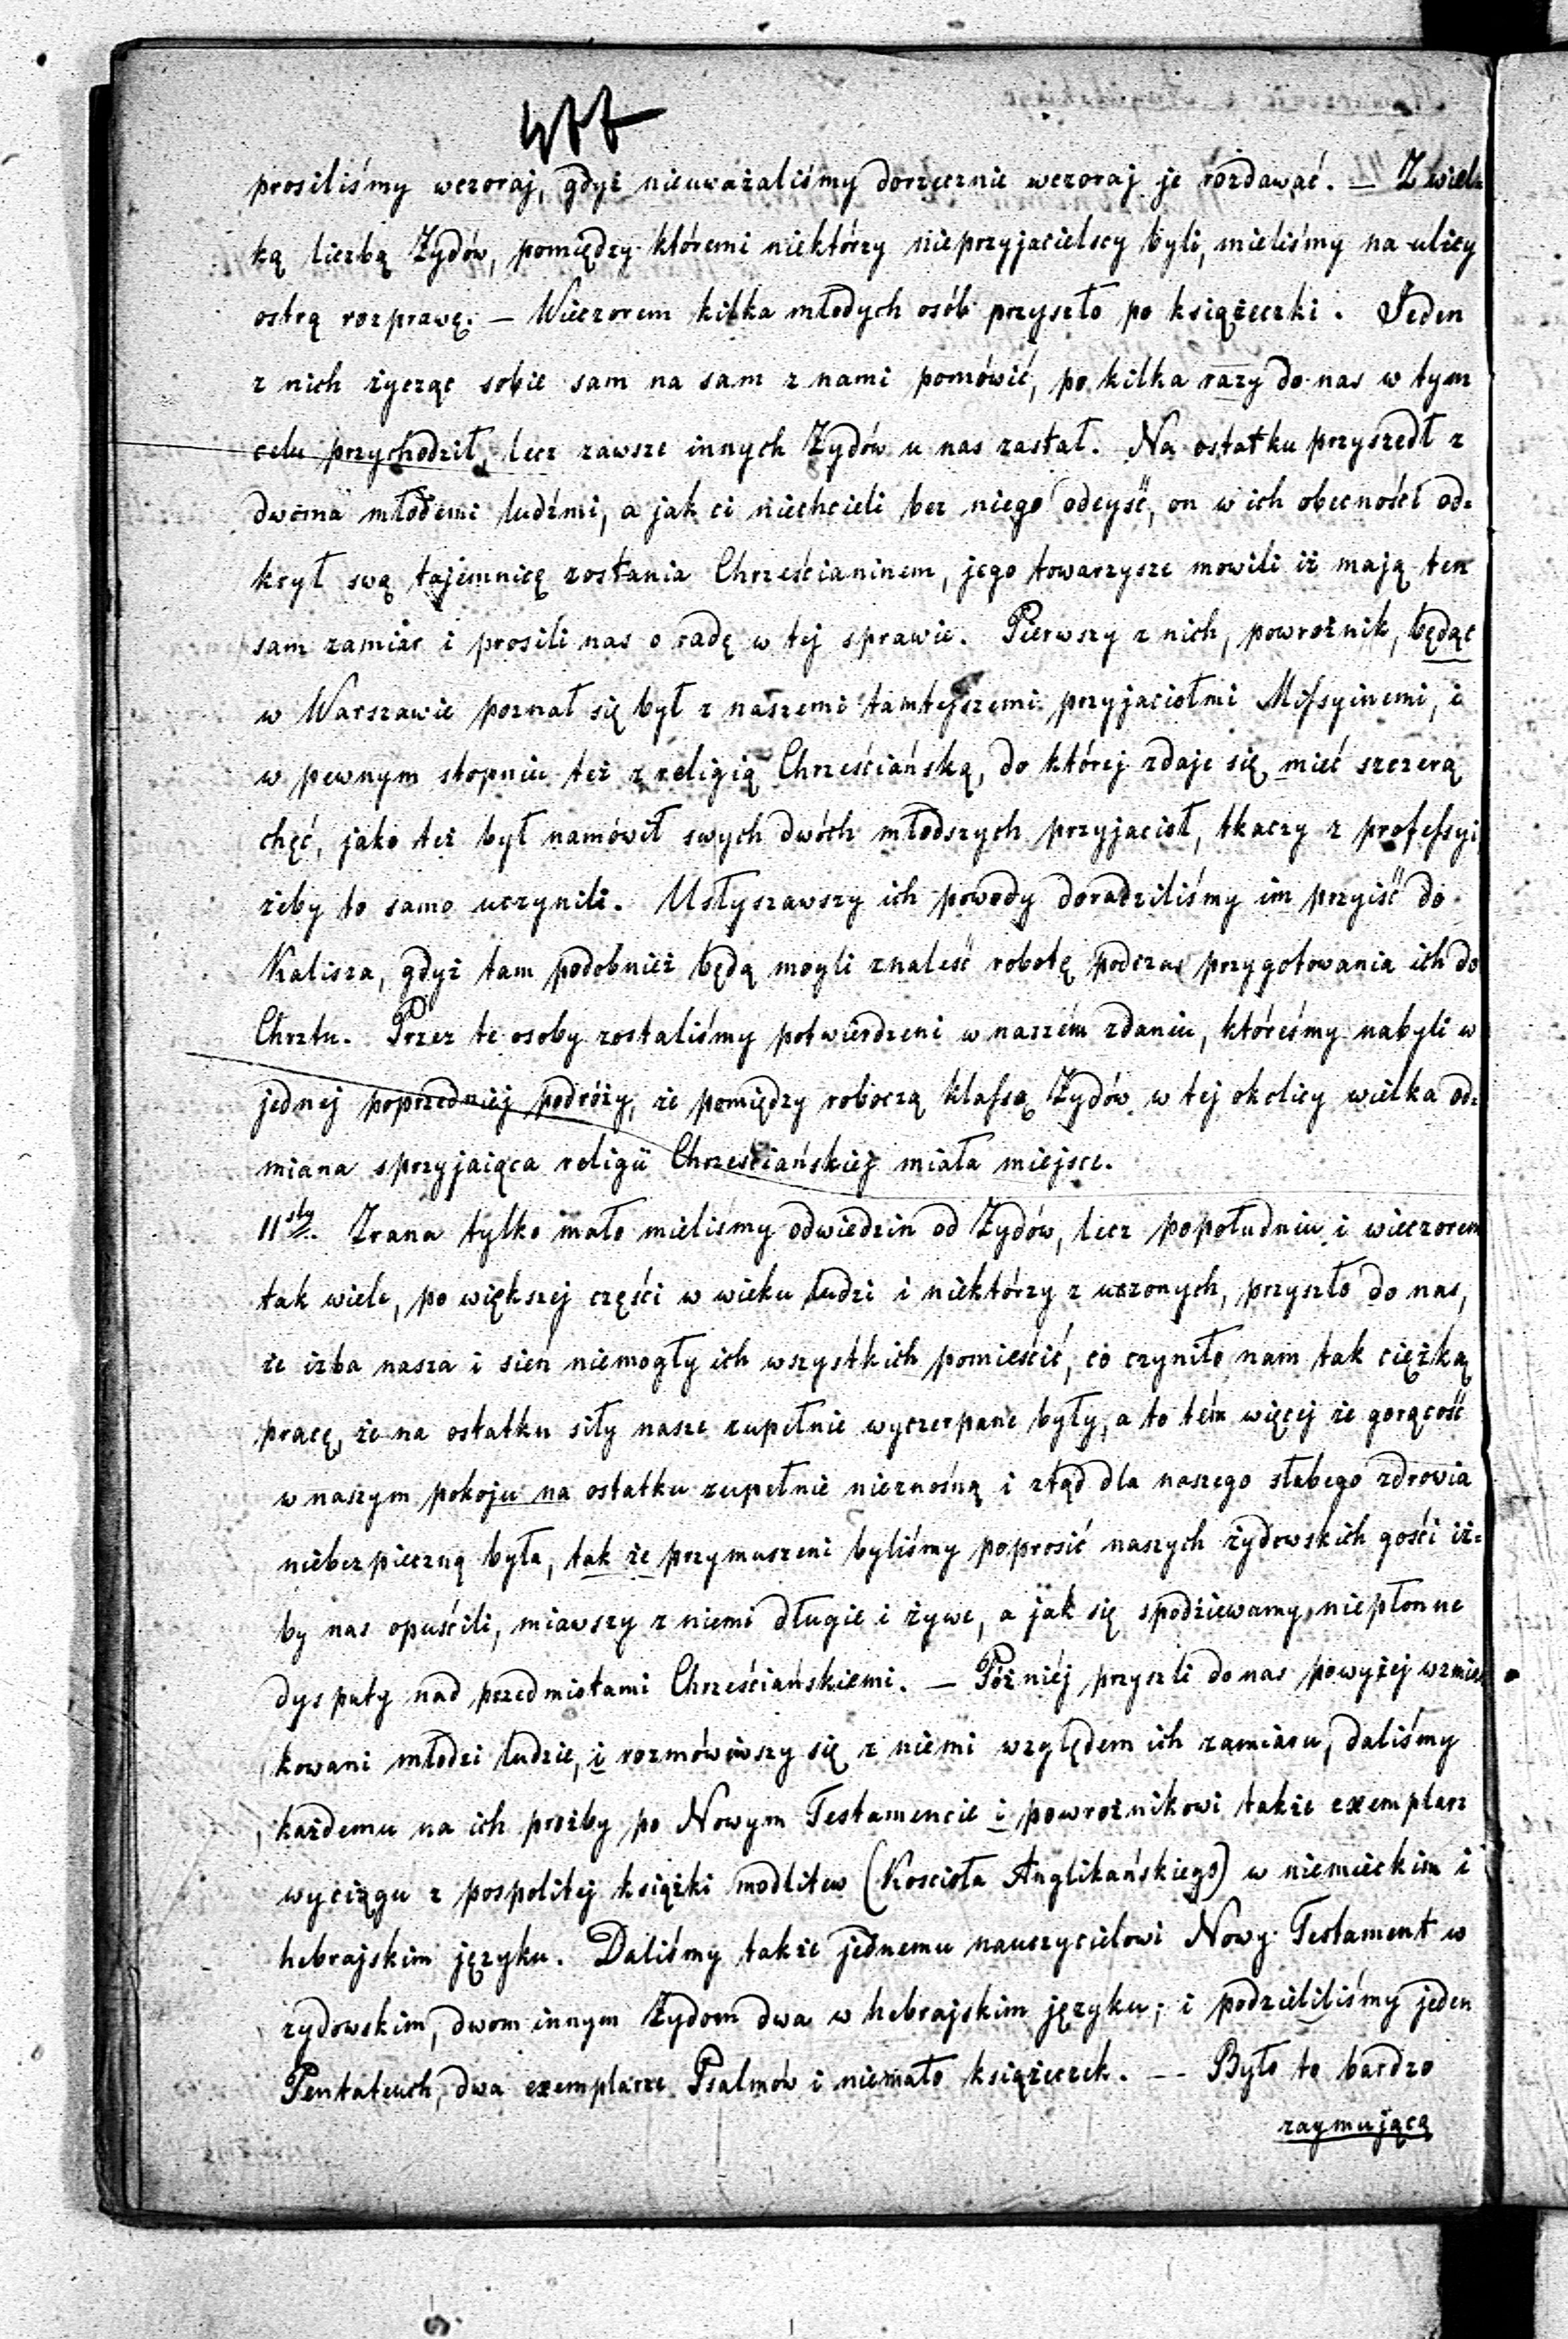 prosiliśmy wczoraj, gdyż nieuważaliśmy dorzecznie wczoraj je rozdawać. — Z wiel-
ką liczbą Żydów, pomiędzy któremi niektórzy nieprzyjacielscy byli, mieliśmy na ulicy
ostrą rozprawę. — Wieczorem kilka młodych osób przyszło po książeczki. Jeden
z nich życząc sobie sam na sam z nami pomówić, po kilka razy do nas w tym
celu przychodził, lecz zawsze innych Żydów u nas zastał. Na ostatku przyszedł z
dwoma młodemi ludźmi, a jak ci niechcieli bez niego odeyść, on w ich obecności od-
krył swą tajemnicę zostania Chrześcianinem, jego towarzysze mowili iż mają ten
sam zamiar i prosili nas o radę w tej sprawie. Pierwszy z nich, powroźnik, będąc
w Warszawie poznał się był z naszemi tamtejszemi przyjaciołmi Missyinemi, i
w pewnym stopniu też z religią Chrześciańską, do której zdaje się mieć szczerą
chęć, jako też był namówił swych dwóch młodszych przyjacioł, tkaczy z professyi,
żeby to samo uczynili. Usłyszawszy ich powody doradziliśmy im przyiść do
Kalisza, gdyż tam podobnież będą mogli znaleść robotę podczas przygotowania ich do
Chrztu. Przez te osoby zostaliśmy potwierdzeni w naszém zdaniu, któreśmy nabyli w
jednej poprzedniej podróży, że pomiędzy roboczą klassą Żydów w tej okolicy wielka od-
miana sprzyjaiąca religii Chrześciańskiej miała miejsce.
11sty. Zrana tylko mało mieliśmy odwiedzin od Żydów, lecz popołudniu i wieczorem
tak wiele, po większej części w wieku ludzi i niektórzy z uczonych, przyszło do nas,
że izba nasza i sień niemogły ich wszystkich pomieścić, co czyniło nam tak ciężką
pracę, że na ostatku siły nasze zupełnie wyczerpane były, a to tém więcej że gorącość
w naszym pokoju na ostatku zupełnie nieznośną i ztąd dla naszego słabego zdrowia
niebezpieczną była, tak że przymuszeni byliśmy poprosić naszych żydowskich gości iż-
by nas opuścili, miawszy z niemi długie i żywe, a jak się spodziewamy, niepłonne
dysputy nad przedmiotami Chrześciańskiemi. — Póżniéj przyszli do nas powyżej wzmian
kowani młodzi ludzie, i rozmówiwszy się z niemi względem ich zamiaru, daliśmy
każdemu na ich prożby po Nowym Testamencie i powroźnikowi także exemplarz
wyciągu z pospolitej książki modlitew (Koscioła Anglikańskiego) w niemieckim i
hebrajskim języku. Daliśmy także jednemu nauczycielowi Nowy Testament w
zydowskim, dwom innym Żydom dwa w hebrajskim języku; i podzieliliśmy jeden
Pentateuch, dwa exemplarze Psalmów i niemało książeczek. — Było to bardzo
zaymującą